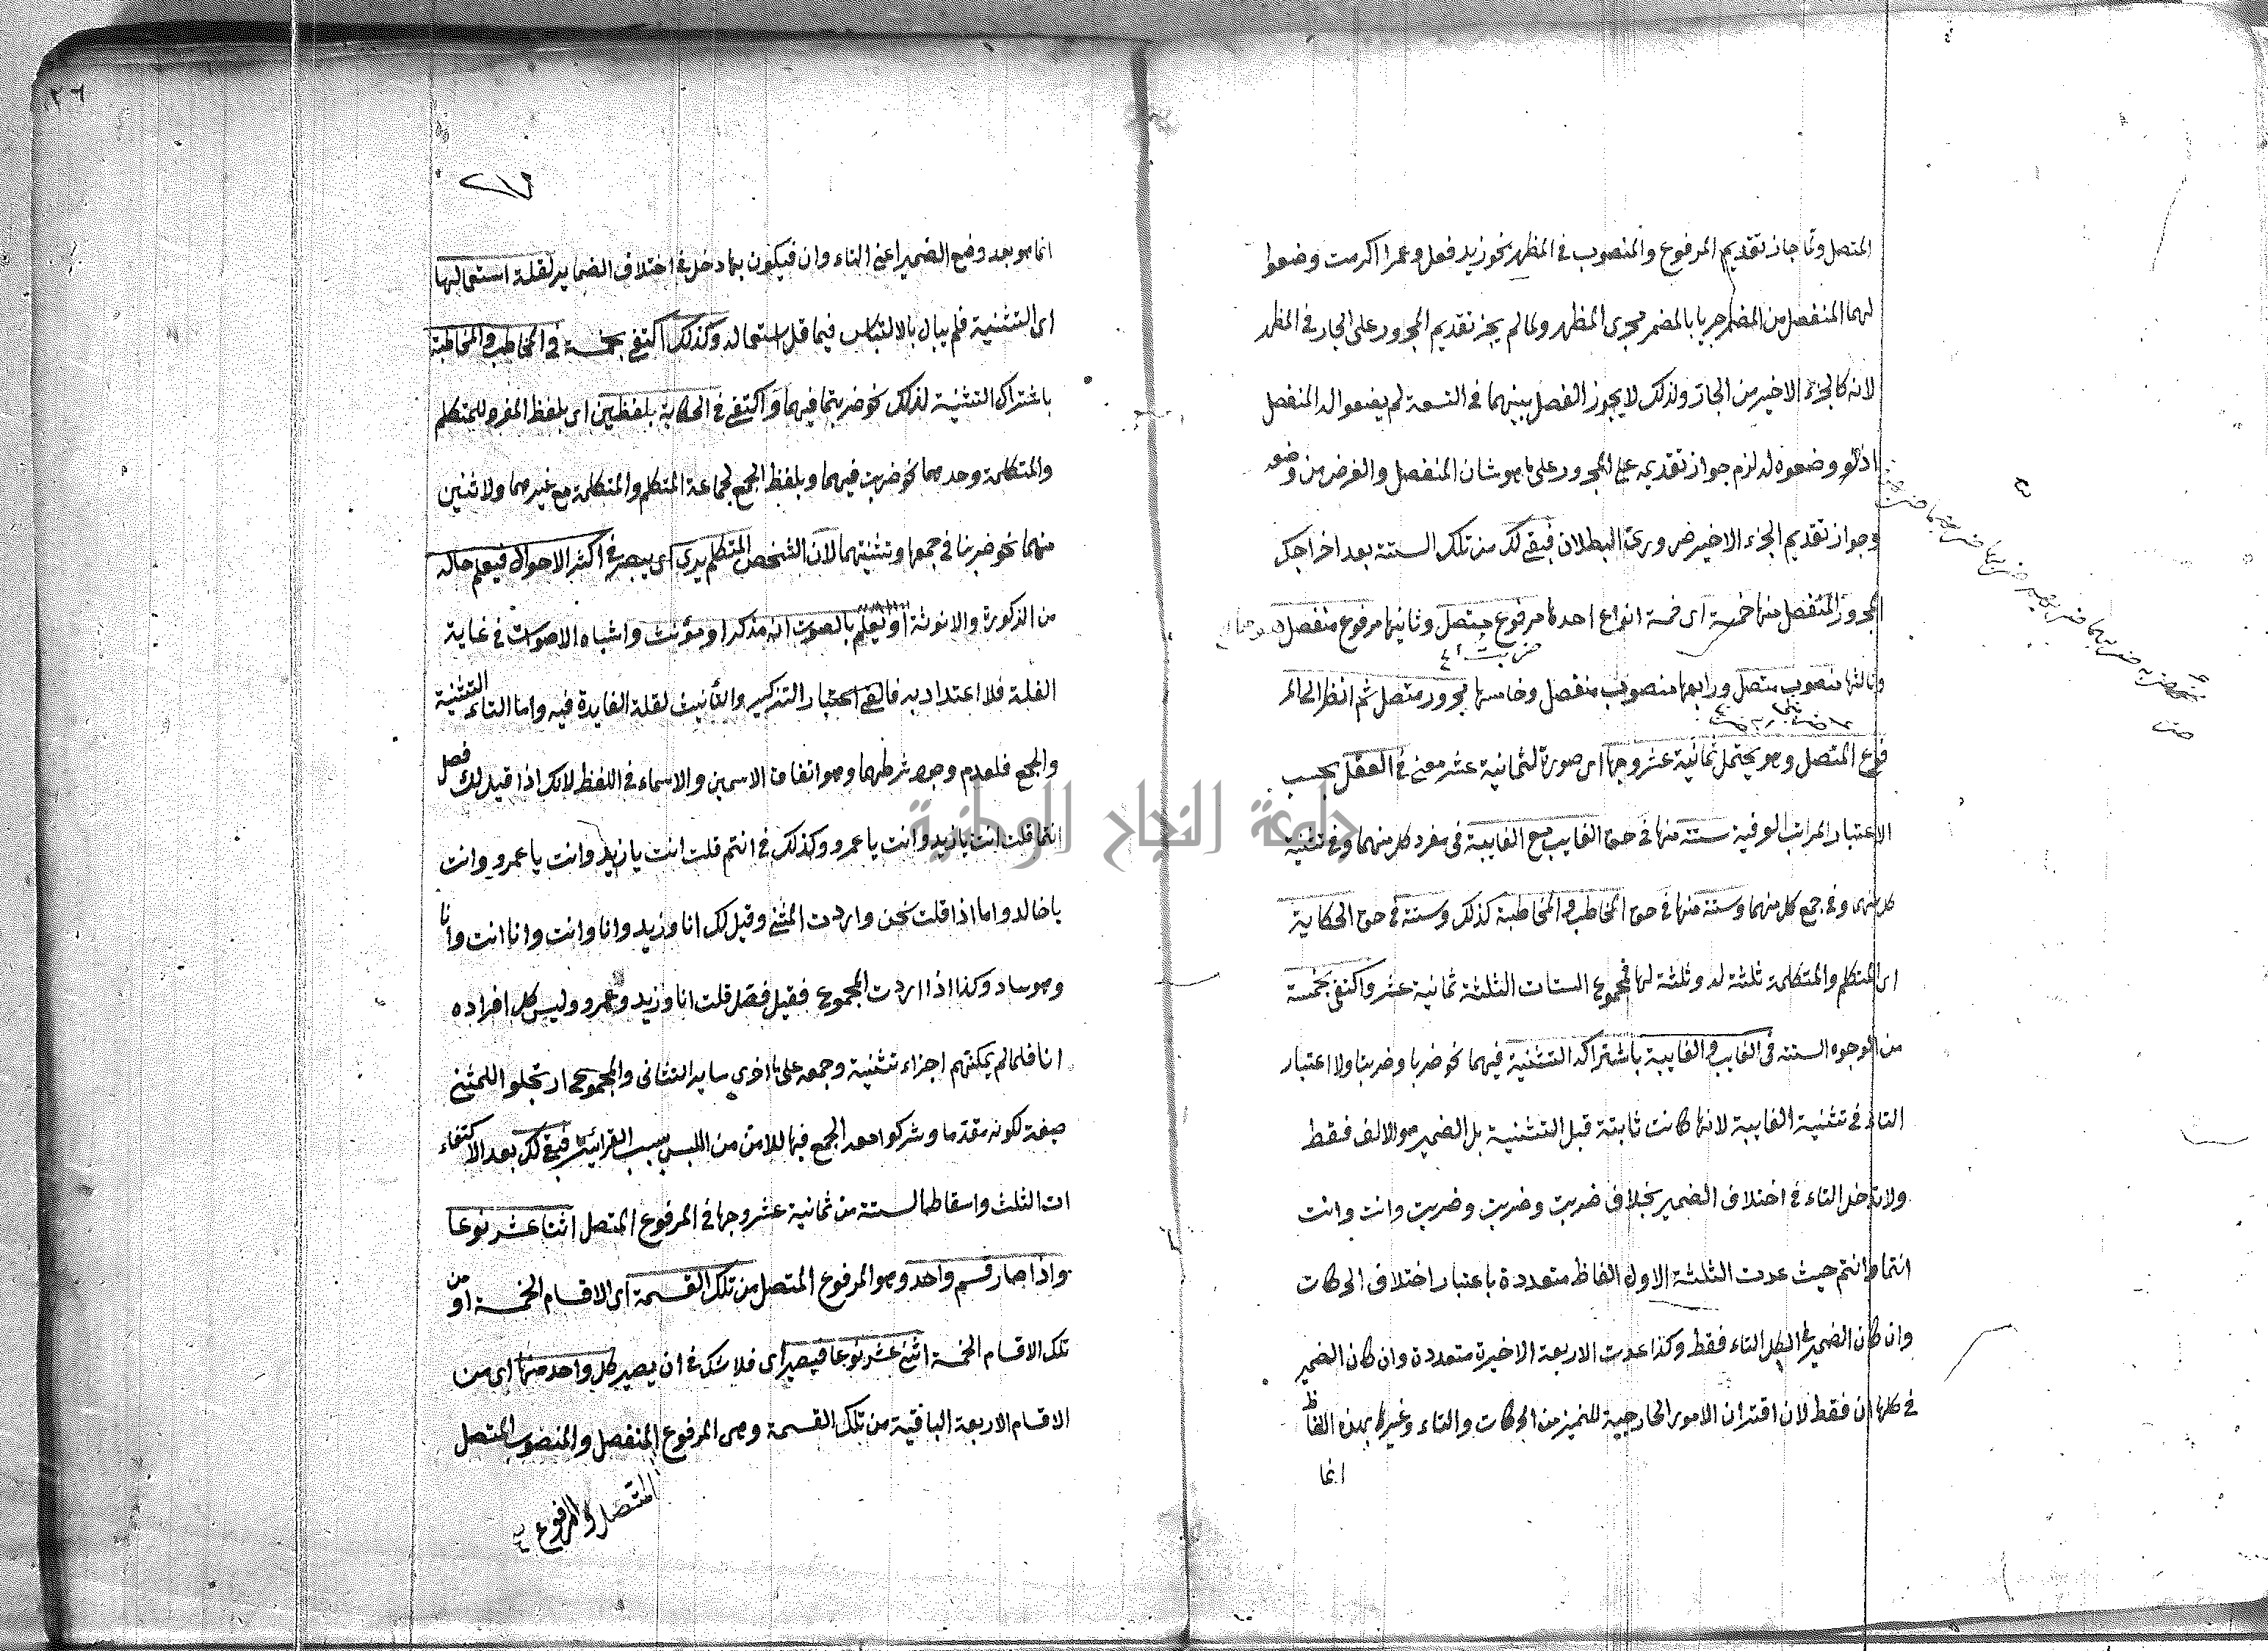 المتصل ولما جاز تقديم المرفوع والمنصوب في المظهر نحو زيد فعل وعمرا اكرمت وضعوا
لهما المنفصل من المضمر جريا بالمضمر مجرى المظهر ولما لم يجز تقديم المجرور على الجار في المظهر
لانه كالجزء الاخير من الجار ولذلك لا يجوز الفصل بينهما في السعة لم يضعوا له المنفصل
اذ لو وضعوه له لزم جواز تقديمه على المجرور على ما هو شان المنفصل والغرض من وضعه
وجواز تقديم الجزء الاخير ضروري البطلان فبقي لك من تلك الستة بعد اخراجك
المجرور المنفصل منها خمسة اى خمسة انواع احدها مرفوع متصل وثانيها مرفوع منفصل
وثالثها منصوب متصل ورابعها منصوب منفصل وخامسها مجرور متصل ثم انظر الى المر
فوع المتصل وهو يحتمل ثمانية عشر وجها اى صورة لثمانية عشر معنى في العقل بحسب
الاعتبار المراتب العرفية ستة منها في حق الغايب مع الغايبة في مفرد كل منهما وفي تثنية
كل منهما وفي جمع كل منهما وستة منها في حق المخاطب والمخاطبة كذلك وستة في حق الحكاية
اى المتكلم والمتكلمة ثلثة له وثلثة لها فمجموع الستات الثلثة ثمانية عشر واكتفى بخمسة
من الوجوه الستة في الغايب والغايبة باشتراك التثنية فيهما نحو ضربا وضربتا ولا اعتبار
التاء في تثنية الغايبة لانها كانت ثابتة قبل التثنية بل الضمير هو الالف فقط
ولا تدخل التاء في اختلاف الضمير بخلاف ضربت وضربت وضربت وانت وانت
انتما وانتم حيث عدت الثلثة الاول الفاظ متعددة باعتبار اختلاف الحركات
وان كان الضمير في الكل التاء فقط وكذا عدت الاربعة الاخيرة متعددة وان كان الضمير
في كلها ان فقط لان اقتران الامور الخارجية للتميز من الحركات والتاء وغيرها بهذه الفاظ
انما
٢٦
انما هو بعد وضع الضمير اعنى التاء وان فيكون بها دخل في اختلاف الضماير لقلة استعمالها
اى التثنية فلم يبال بالالتباس فيما قل استعماله وكذلك اكتفى بخمسة في المخاطب والمخاطبة
باشتراك التثنية لذلك نحو ضربتما فيهما واكتفى في الحكاية بلفظين اى بلفظ المفرد للمتكلم
والمتكلمة وحدهما نحو ضربت فيهما وبلفظ الجمع لجماعة المتكلم والمتكلمة مع غيرهما ولاثنين
منهما نحو ضربنا في جمعها وتثنيتهما لان الشخص المتكلم يرى اى يبصر في اكثر الاحوال فيعلم حاله
من الذكورة والانوثة او يعلم بالصوت انه مذكر او مؤنث واشباه الاصوات في غاية
القلة فلا اعتداد به فالغى اعتبار التذكير والتأنيث لقلة الفايدة فيه واما التاء التثنية
والجمع فلعدم وجود شرطهما وهو اتفاق الاسمين والاسماء في اللفظ لانك اذا قيل لك فصل
انتما قلت انت يا زيد وانت يا عمرو وكذلك في انتم قلت انت يا زيد وانت يا عمرو وانت
يا خالد واما اذا قلت نحن واردت المثنى وقيل لك انا وزيد وانا وانت وانا انت وانا
وهو ساد وكذا اذا اردت المجموع فقيل فصل قلت انا وزيد وعمرو وليس كل افراده
انا فلما لم يمكنهم اجزاء تثنية وجمعه على ما اخرى ساير التثانى والمجموع ارتجلوا للمثنى
صيغة لكونه مقدما وشركوا معه الجمع فيها للامن من اللبس بسبب القراين فبقي لك بعد الاكتفاء
ات الثلث واسقاط الستة من ثمانية عشر وجها في المرفوع المتصل اثنا عشر نوعا
واذا صار قسم واحد وهو المرفوع المتصل من تلك القسمة اى الاقسام الخمسة او من
تلك الاقسام الخمسة اثنى عشر نوعا فيصير اى فلا شك في ان يصير كل واحد منها اى من
الاقسام الاربعة الباقية من تلك القسمة وهى المرفوع المنفصل والمنصوب المتصل
المتصل والمرفوع
جامعة النجاح الوطنية